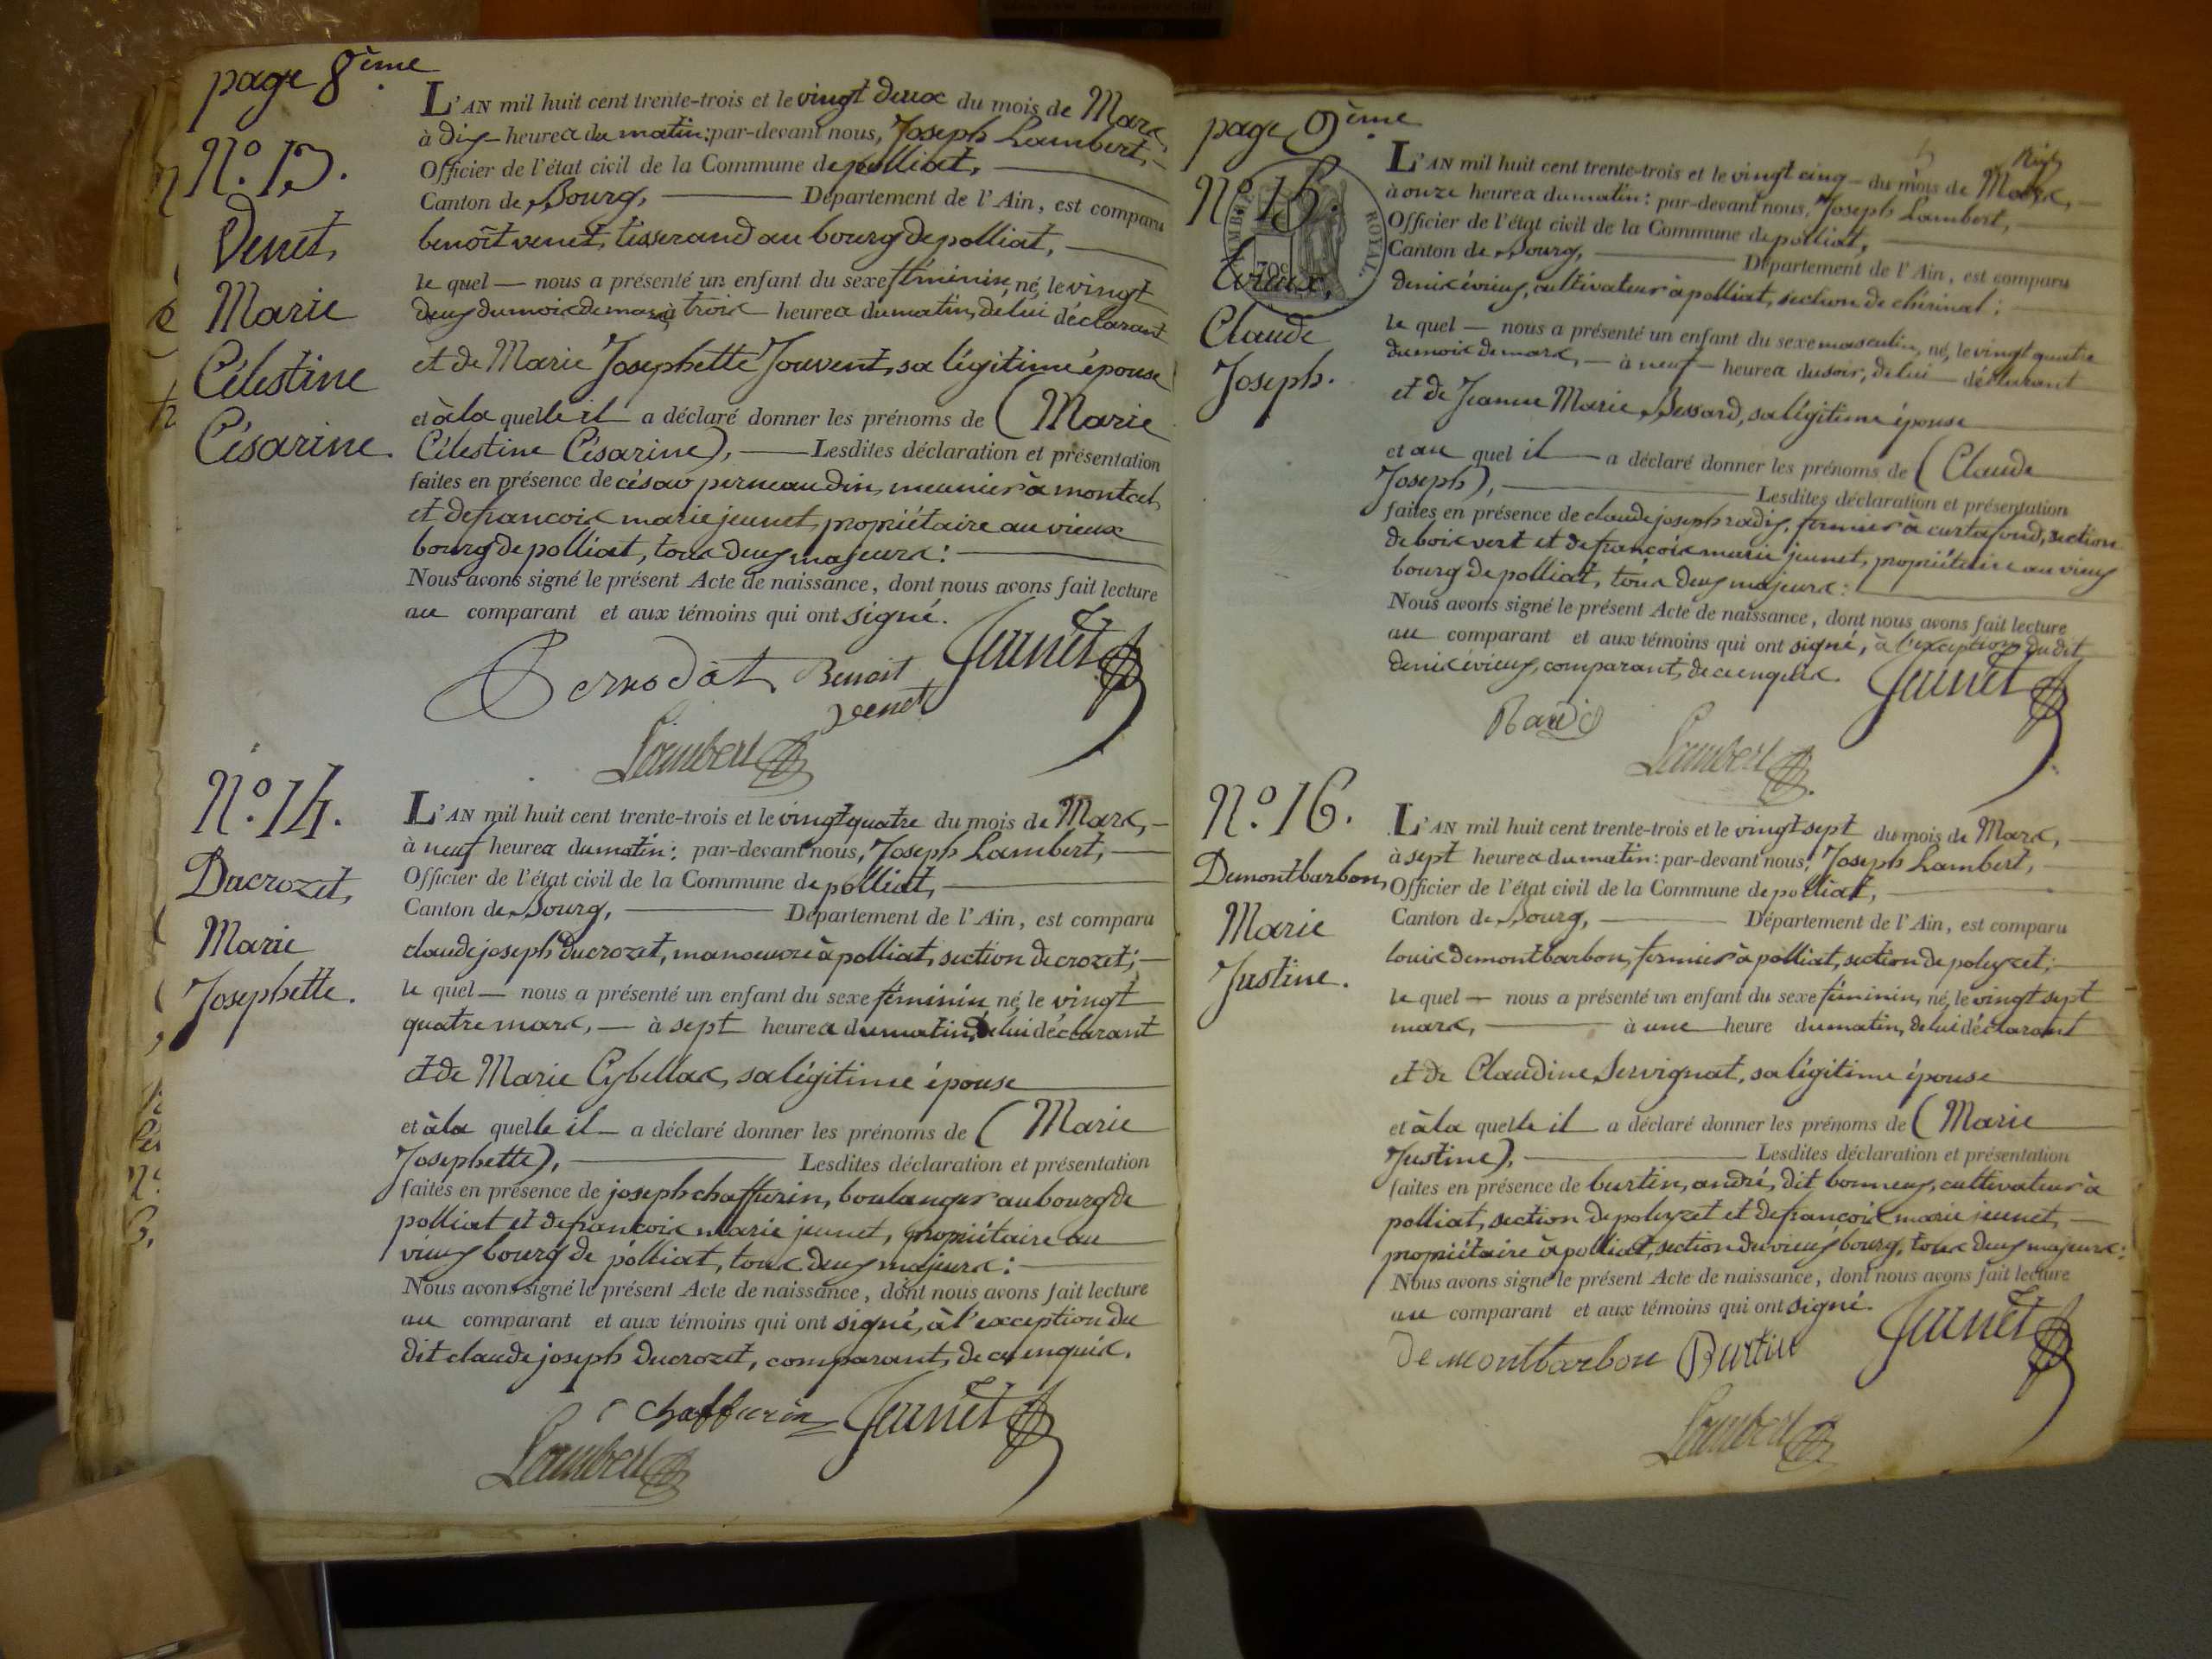 page 8ème
N.º 13.
Venet,
Marie
Célestine
Césarine.
L'AN mil huit cent trente-trois et le vingt deux du mois de Mars,
à dix heures du matin: par-devant nous, Joseph Lambert,
Officier de l'état civil de la Commune de polliat,
Canton de Bourg, Département de l'Ain, est comparu
benoît venet, tisserand au bourg de polliat,
le quel nous a présenté un enfant du sexe féminin, né, le vingt
deux du mois de mars, à trois heures du matin, de lui déclarant
et de Marie Josephette Jouvent, sa légitime épouse
et à la quelle il a déclaré donner les prénoms de (Marie
Célestine Césarine), Lesdites déclaration et présentation
faites en présence de césar perneaudin, meunier à montcel,
et de françois marie jeunet, propriétaire au vieux
bourg de polliat, tous deux majeurs:
Nous avons signé le présent Acte de naissance, dont nous avons fait lecture
au comparant et aux témoins qui ont signé.
Benoit Jeunet
venet
Lambert
N.º 14.
Ducrozet,
Marie
Josephette.
L'AN mil huit cent trente-trois et le vingt quatre du mois de Mars,
à neuf heures du matin: par-devant nous, Joseph Lambert,
Officier de l'état civil de la Commune de polliat,
Canton de Bourg, Département de l'Ain, est comparu
claude joseph ducrozet, manoeuvre à polliat, section de crozet;
le quel nous a présenté un enfant du sexe féminin, né, le vingt
quatre mars, à sept heures du matin, de lui déclarant
et de Marie Cybellas, sa légitime épouse
et à la quelle il a déclaré donner les prénoms de (Marie
Josephette), Lesdites déclaration et présentation
faites en présence de joseph chaffurin, boulanger au bourg de
polliat et de françois marie jeunet, propriétaire au
vieux bourg de polliat, tous deux majeurs:
Nous avons signé le présent Acte de naissance, dont nous avons fait lecture
au comparant et aux témoins qui ont signé, à l'exception du
dit claude joseph ducrozet, comparant, de ce enquis.
chaffurin Jeunet
Lambert
page 9ème
N.º 15.
Evieux,
Claude
Joseph.
TIMBRE ROYAL
70c
L'AN mil huit cent trente-trois et le vingt cinq du mois de Mars,
à onze heures du matin: par-devant nous, Joseph Lambert,
Officier de l'état civil de la Commune de polliat,
Canton de Bourg, Département de l'Ain, est comparu
denis évieux, cultivateur à polliat, section de chérinal;
le quel nous a présenté un enfant du sexe masculin, né, le vingt quatre
du mois de mars, à neuf heures du soir, de lui déclarant
et de Jeanne Marie Bessard, sa légitime épouse
et au quel il a déclaré donner les prénoms de (Claude
Joseph), Lesdites déclaration et présentation
faites en présence de claude joseph radix, fermier à curtafond, section
de bois vert et de françois marie jeunet, propriétaire au vieux
bourg de polliat, tous deux majeurs:
Nous avons signé le présent Acte de naissance, dont nous avons fait lecture
au comparant et aux témoins qui ont signé, à l'exception du dit
denis évieux, comparant, de ce enquis.
Jeunet
Lambert
N.º 16.
Demontbarbon,
Marie
Justine.
L'AN mil huit cent trente-trois et le vingt sept du mois de Mars,
à sept heures du matin: par-devant nous, Joseph Lambert,
Officier de l'état civil de la Commune de polliat,
Canton de Bourg, Département de l'Ain, est comparu
louis demontbarbon, fermier à polliat, section de polezet;
le quel nous a présenté un enfant du sexe féminin, né, le vingt sept
mars, à une heure du matin, de lui déclarant
et de Claudine Servignat, sa légitime épouse
et à la quelle il a déclaré donner les prénoms de (Marie
Justine), Lesdites déclaration et présentation
faites en présence de burtin, andré, dit bonneux, cultivateur à
polliat, section de polezet et de françois marie jeunet,
propriétaire à polliat, section du vieux bourg, tous deux majeurs:
Nous avons signé le présent Acte de naissance, dont nous avons fait lecture
au comparant et aux témoins qui ont signé.
Demontbarbon Burtin Jeunet
Lambert